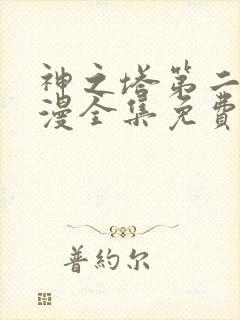 神之塔第二
漫全集免費
普約尔